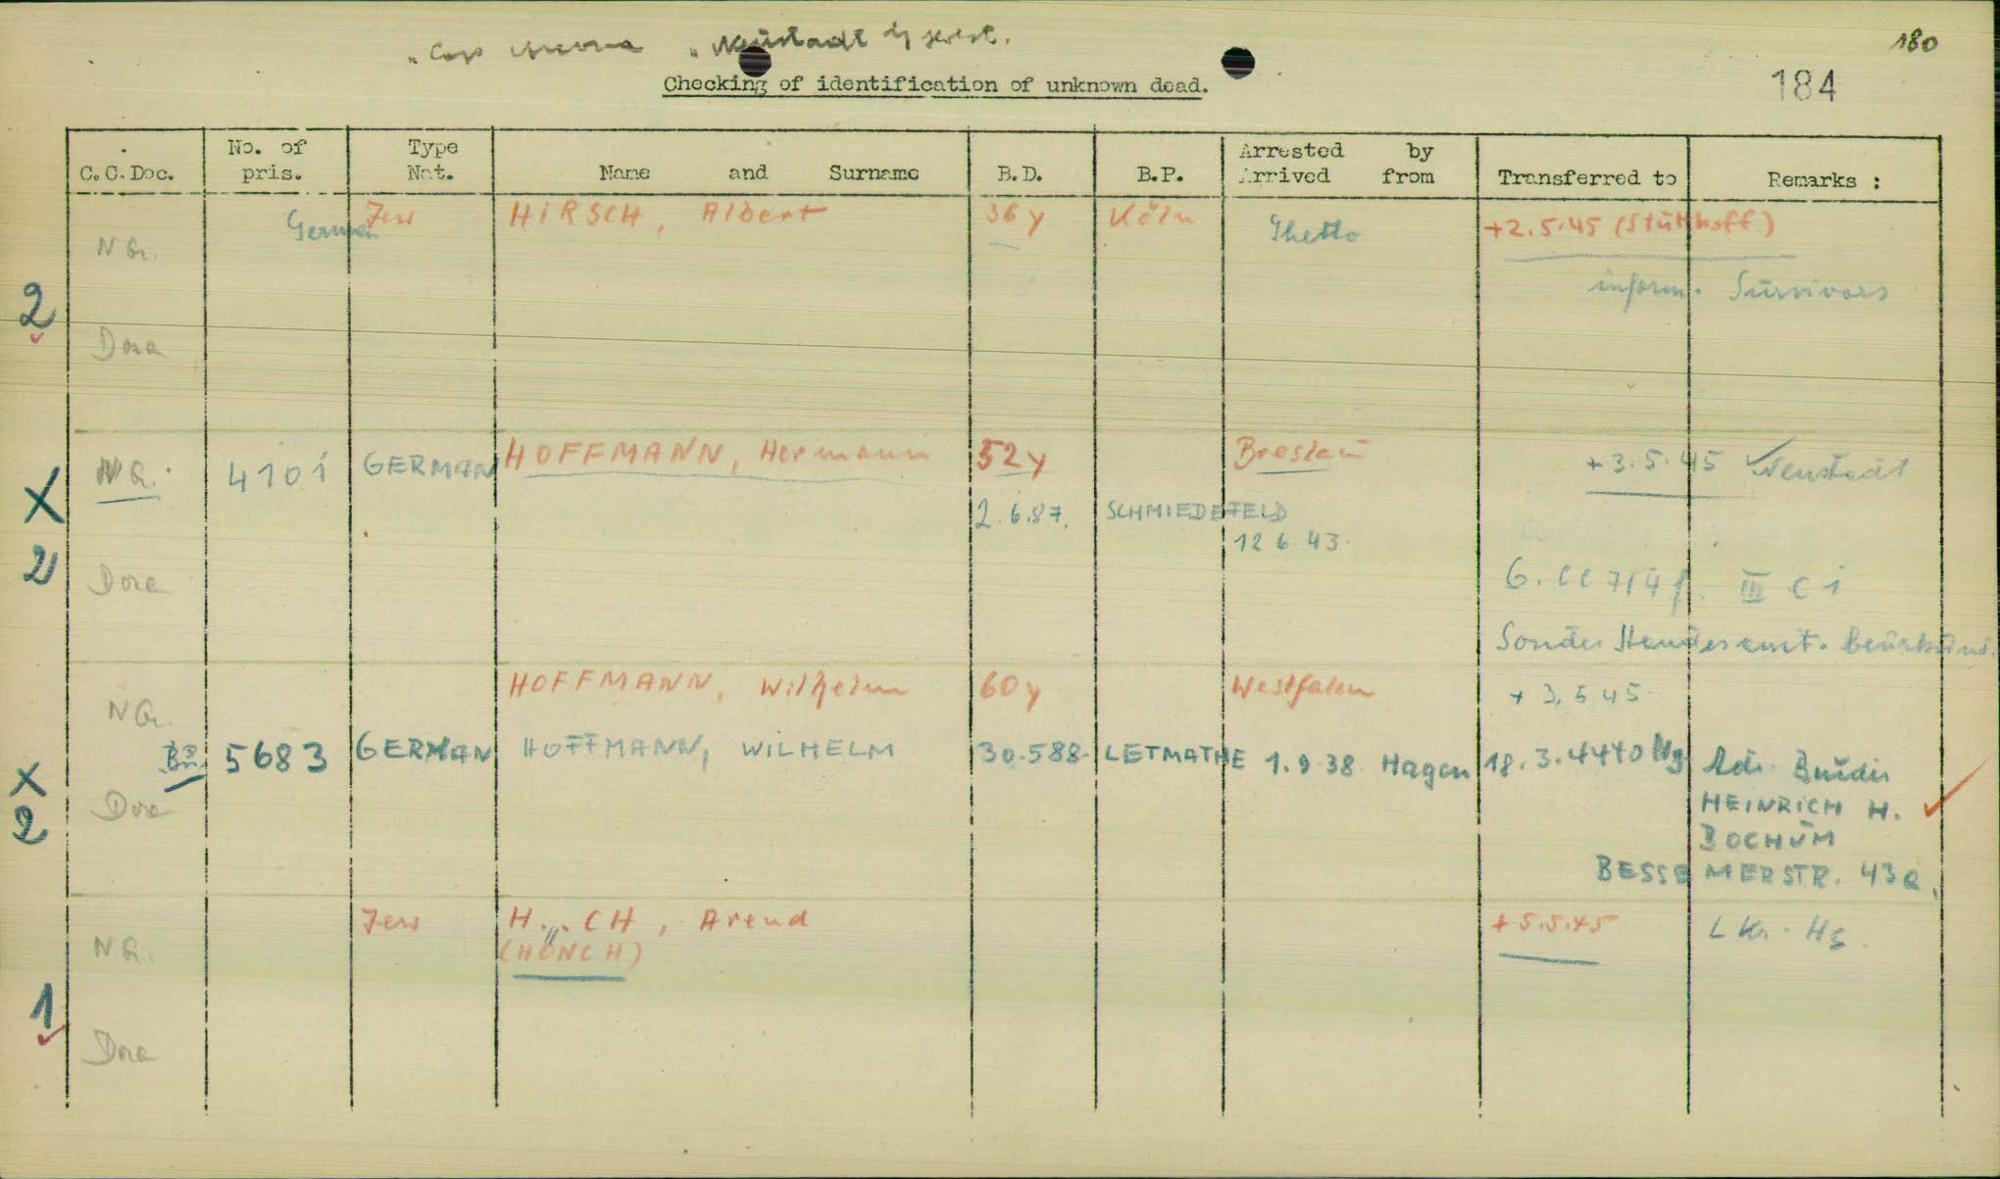 "Cap Arcona" "Neustadt i/
180
Checking of identification of unknown dead.
184
C.C.Doc. No. of pris. Type Nat. Name and Surname B.D. B.P. Arrested by Arrived from Transferred to Remarks :
NGa. German Jew HIRSCH, Albert 36y Köln Ghetto +2.5.45 (Stutthoff)
inform. Survivors
2
Dora
NGa. 4101 GERMAN HOFFMANN, Hermann 52y Breslau +3.5.45 Neustadt
X
2.6.87. SCHMIEDEFELD
12 6 43.
2
Dora III C 1
Sonderstandesamt.
HOFFMANN, Wilhelm 60y Westfalen + 3.5.45
NGa.
Bu 5683 GERMAN HOFFMANN, WILHELM 30.588 LETMATHE 1.9.38 Hagen 18.3.44 Adr. Bruder
X
2
Dora HEINRICH H.
BOCHUM
BESSEMERSTR. 43a.
Jew H...CH, Arend +5.5.45
NGa. (HÖNCH)
1
Dora